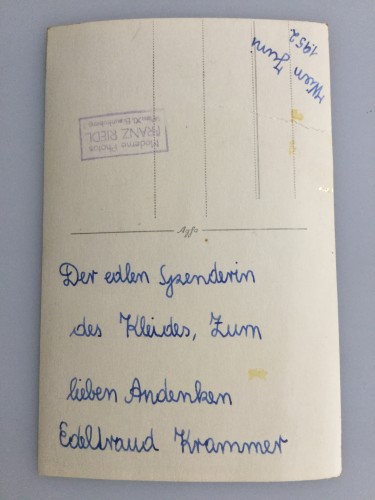 Wien Juni
1952
Moderne Photos
FRANZ RIEDL
Agfa
Der edlen Spenderin
des Kleides, Zum
lieben Andenken
Edeltraud Krammer